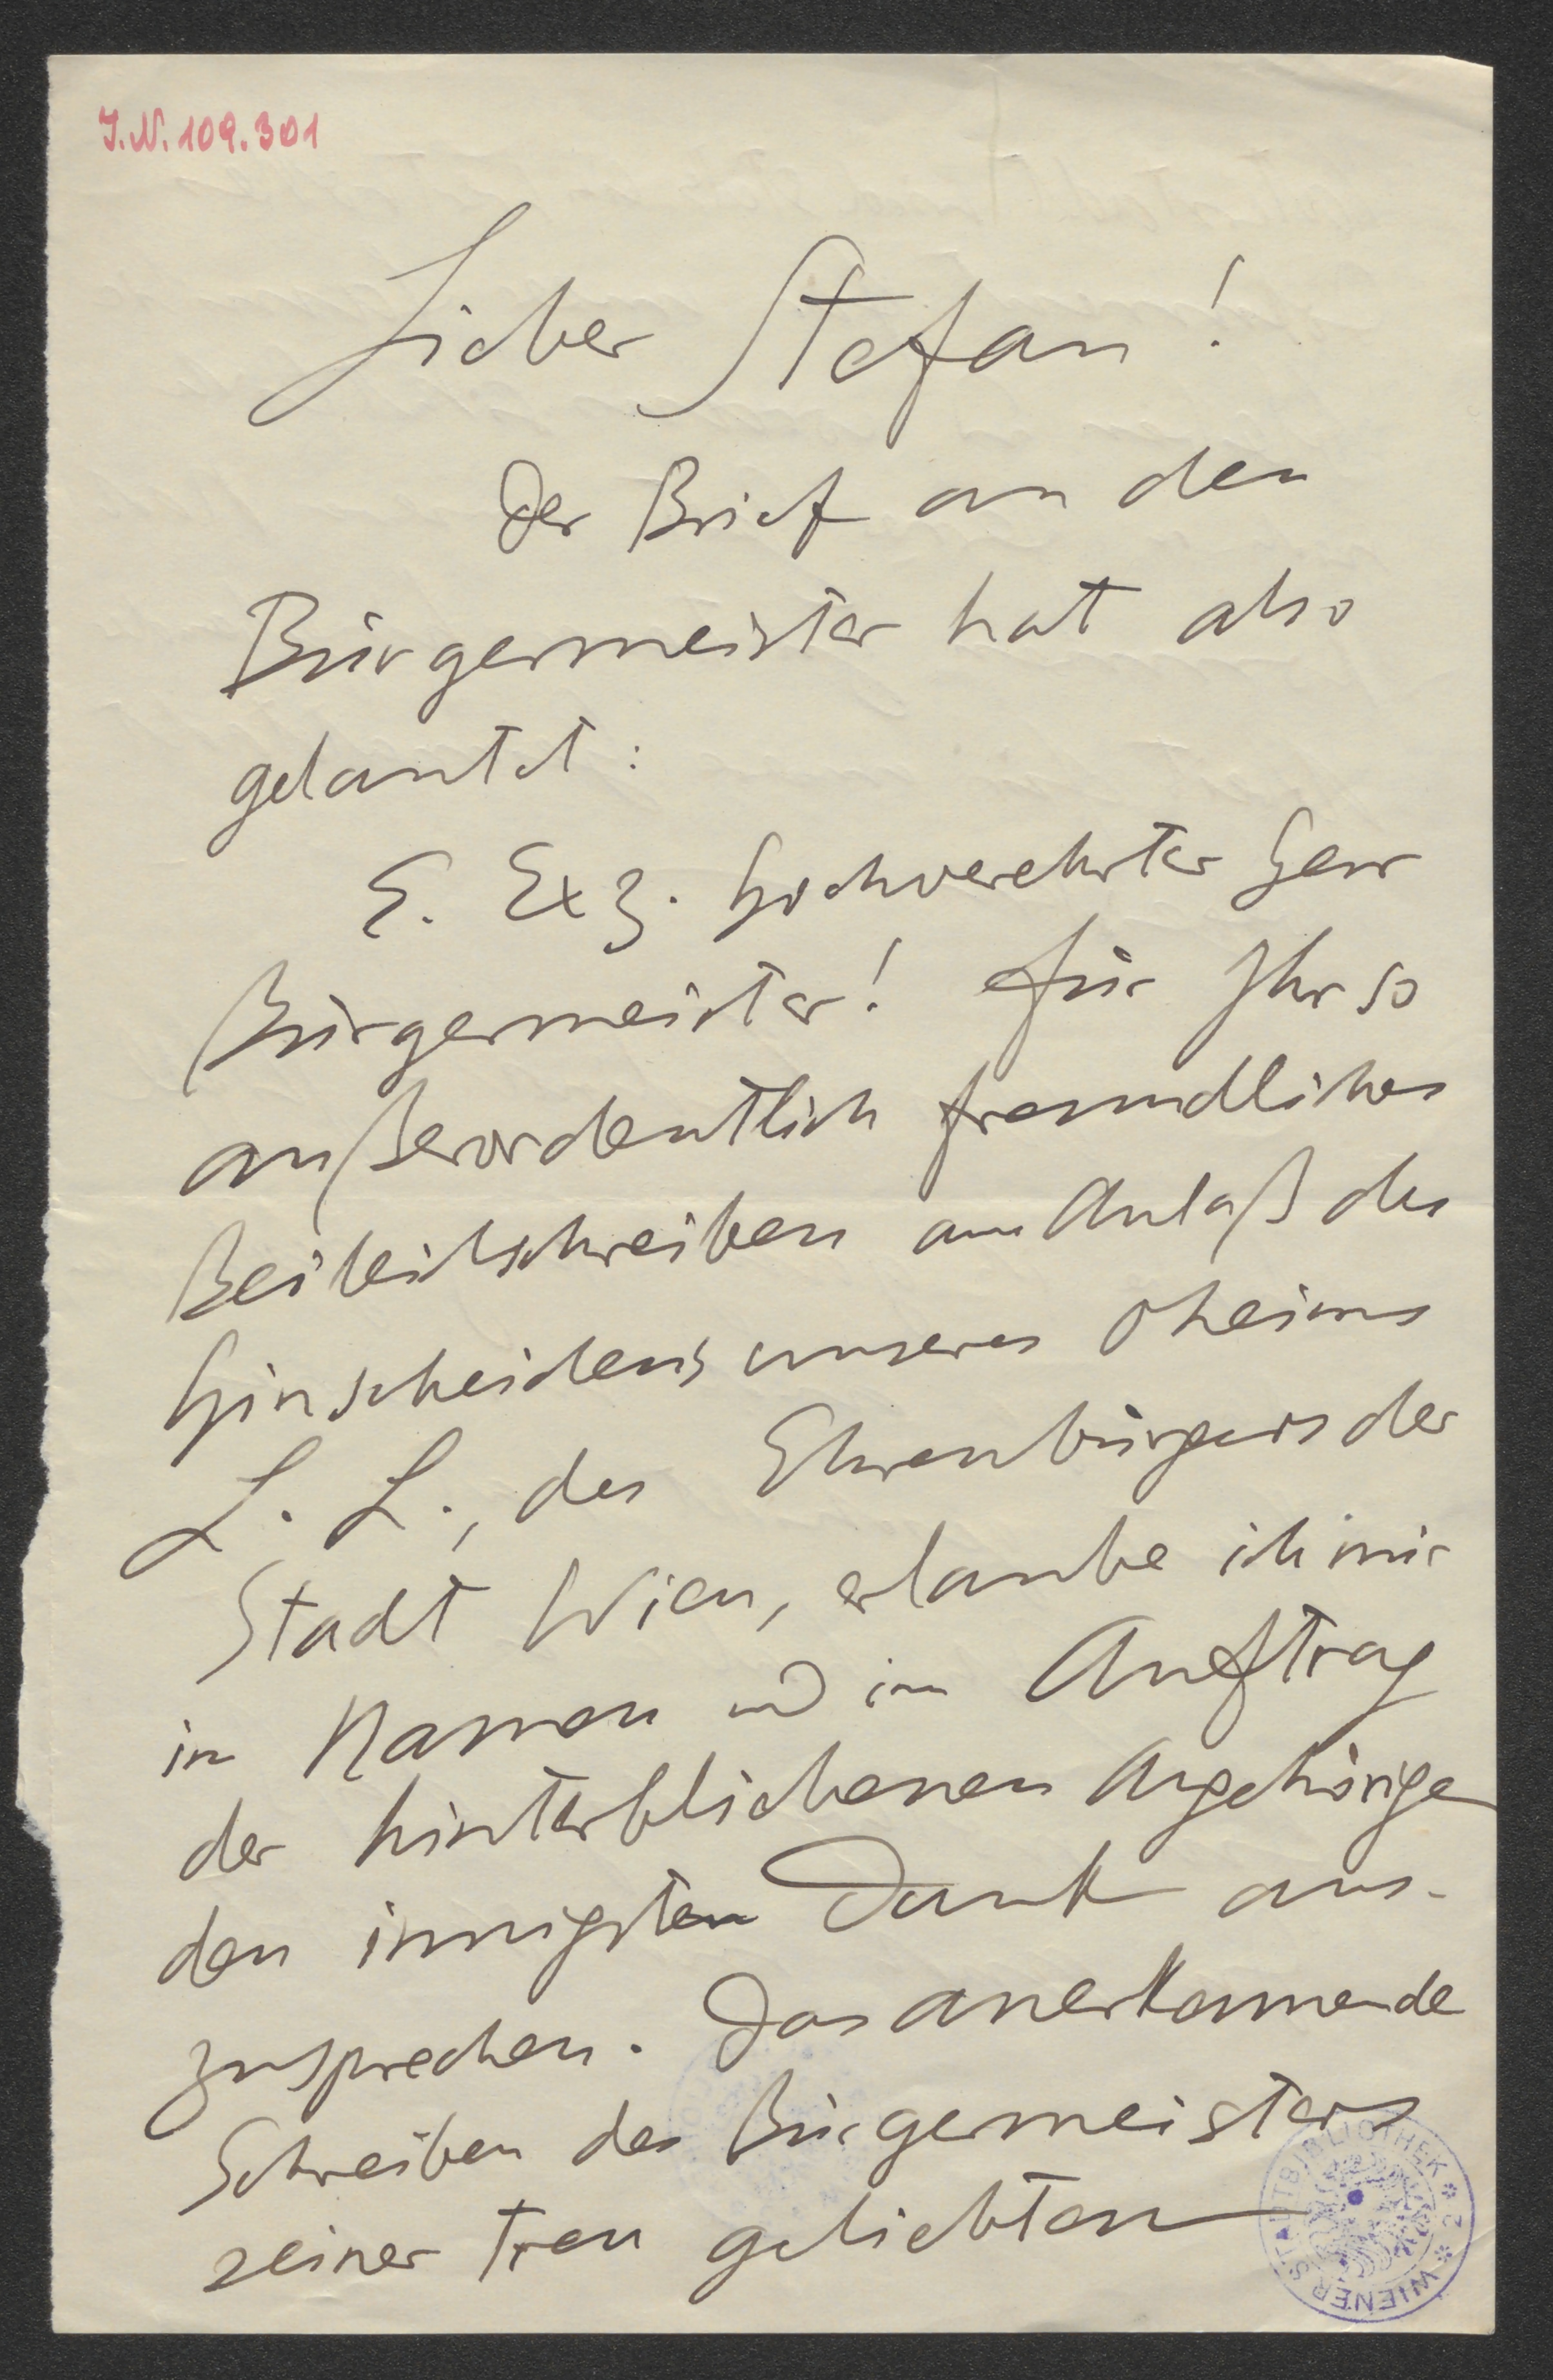 J.N. 109.301
Lieber Stefan!
Der Brief an den
Bürgermeister hat also
gelautet:
E. Exz. Hochverehrter Herr
Bürgermeister! Für Ihr so
außerordentlich freundliches
Beileidschreiben am Anlaß des
Hinscheidens unseres Oheims
L. L., des Ehrenbürgers der
Stadt Wien, erlaube ich mir
im Namen und im Auftrag
der hinterbliebenen Angehörigen
den innigsten Dank aus-
zusprechen. Das anerkennende
Schreiben des Bürgermeisters
seiner treu geliebten
WIENER STADTBIBLIOTHEK * 2 *